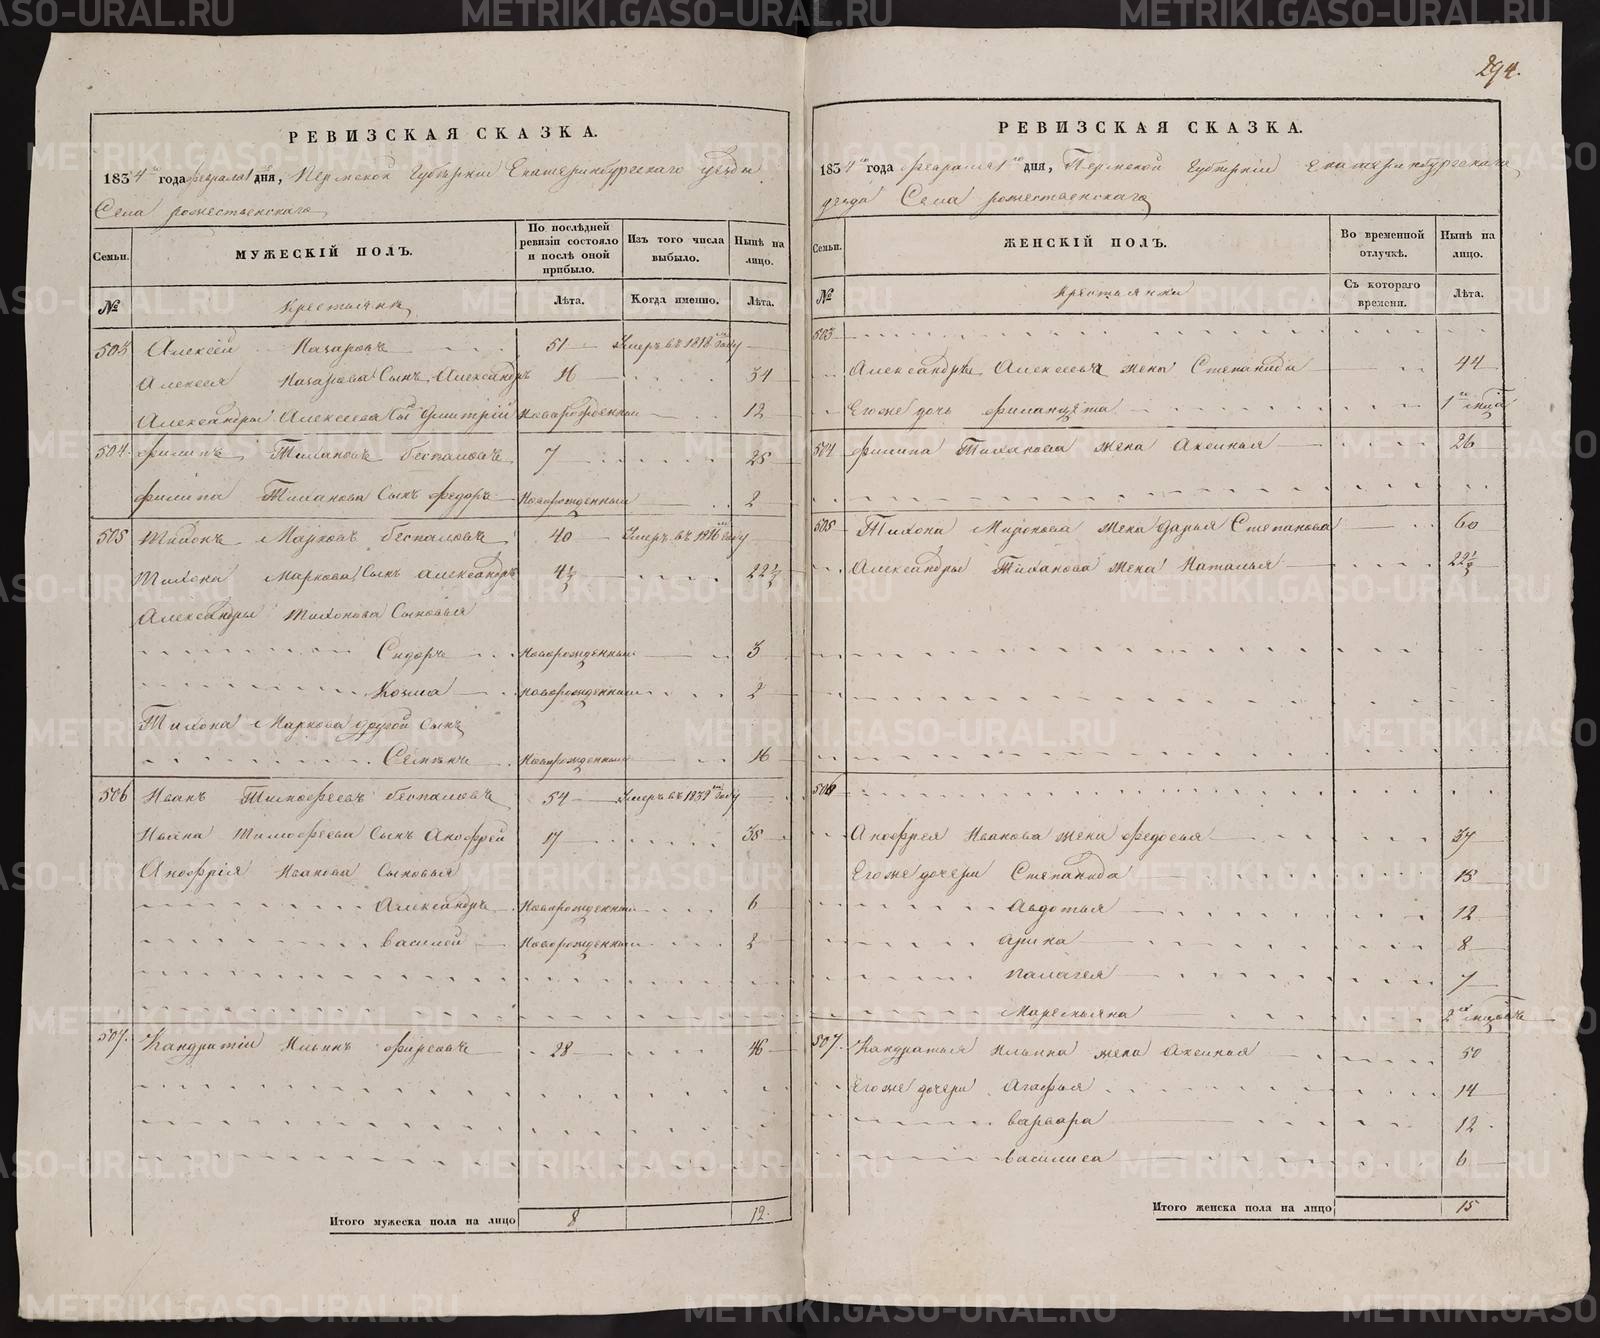 294.
РЕВИЗСКАЯ СКАЗКА.
1834 года февраля 1 дня, Пермской Губернiи Екатеринбургскаго уезда
Села рожественскаго
Семьи. МУЖЕСКIЙ ПОЛЪ. По послѣдней ревизiи состояло и послѣ оной прибыло. Изъ того числа выбыло. Нынѣ на лицо.
№ Крестьяне Лѣта. Когда именно. Лѣта.
503 Алексей Назаровъ 51 Умеръ въ 1818 году
Алексея Назарова Сынъ Александръ 16 34
Александры Алексеева Сы Дмитрiй Новорожденный 12
504 Филипъ Тихановъ беспаловъ 7 25
Филипа Тиханова Сынъ Федоръ Новорожденный 2
505 Тихонъ Марковъ беспаловъ 40 Умеръ въ 1816 году
Тихона Маркова Сынъ Александръ 4½ 22½
Александры Тихонова Сыновья
Сидоръ Новорожденный 3
Козма Новорожденный 2
Тихона Маркова другой Сынъ
Семенъ Новорожденный 16
506 Иванъ Тимофеевъ беспаловъ 54 Умеръ въ 1832 году
Ивана Тимофеева Сынъ Анофрей 17 35
Анофрiя Иванова Сыновья
Александръ Новорожденный 6
Василей Новорожденный 2
507 Кандратiй Ильинъ 28 46
Итого мужеска пола на лицо 8 12
РЕВИЗСКАЯ СКАЗКА.
1834 года февраля 1 дня, Пермской Губернiи Екатеринбургскаго
уезда Села рожественскаго
Семьи. ЖЕНСКIЙ ПОЛЪ. Во временной отлучкѣ. Нынѣ на лицо.
№ Крестьянки Съ котораго времени. Лѣта.
503
Александры Алексеева жена Степанида 44
Егоже дочь 1
504 Филипа Тиханова жена Аксинья 26
505 Тихона Миронова жена Дарья Степанова 60
Александры Тиханова жена Наталья 22½
506
Анофрея Иванова жена Федосья 37
Егоже дочери Степанида 15
Авдотья 12
Арина 8
Палагея 7
Маремьяна 2
507 Кандратья Ильина жена Аксинья 50
Егоже дочери Агафья 14
Варвара 12
Василиса 6
Итого женска пола на лицо 15
METRIKI.GASO-URAL.RU